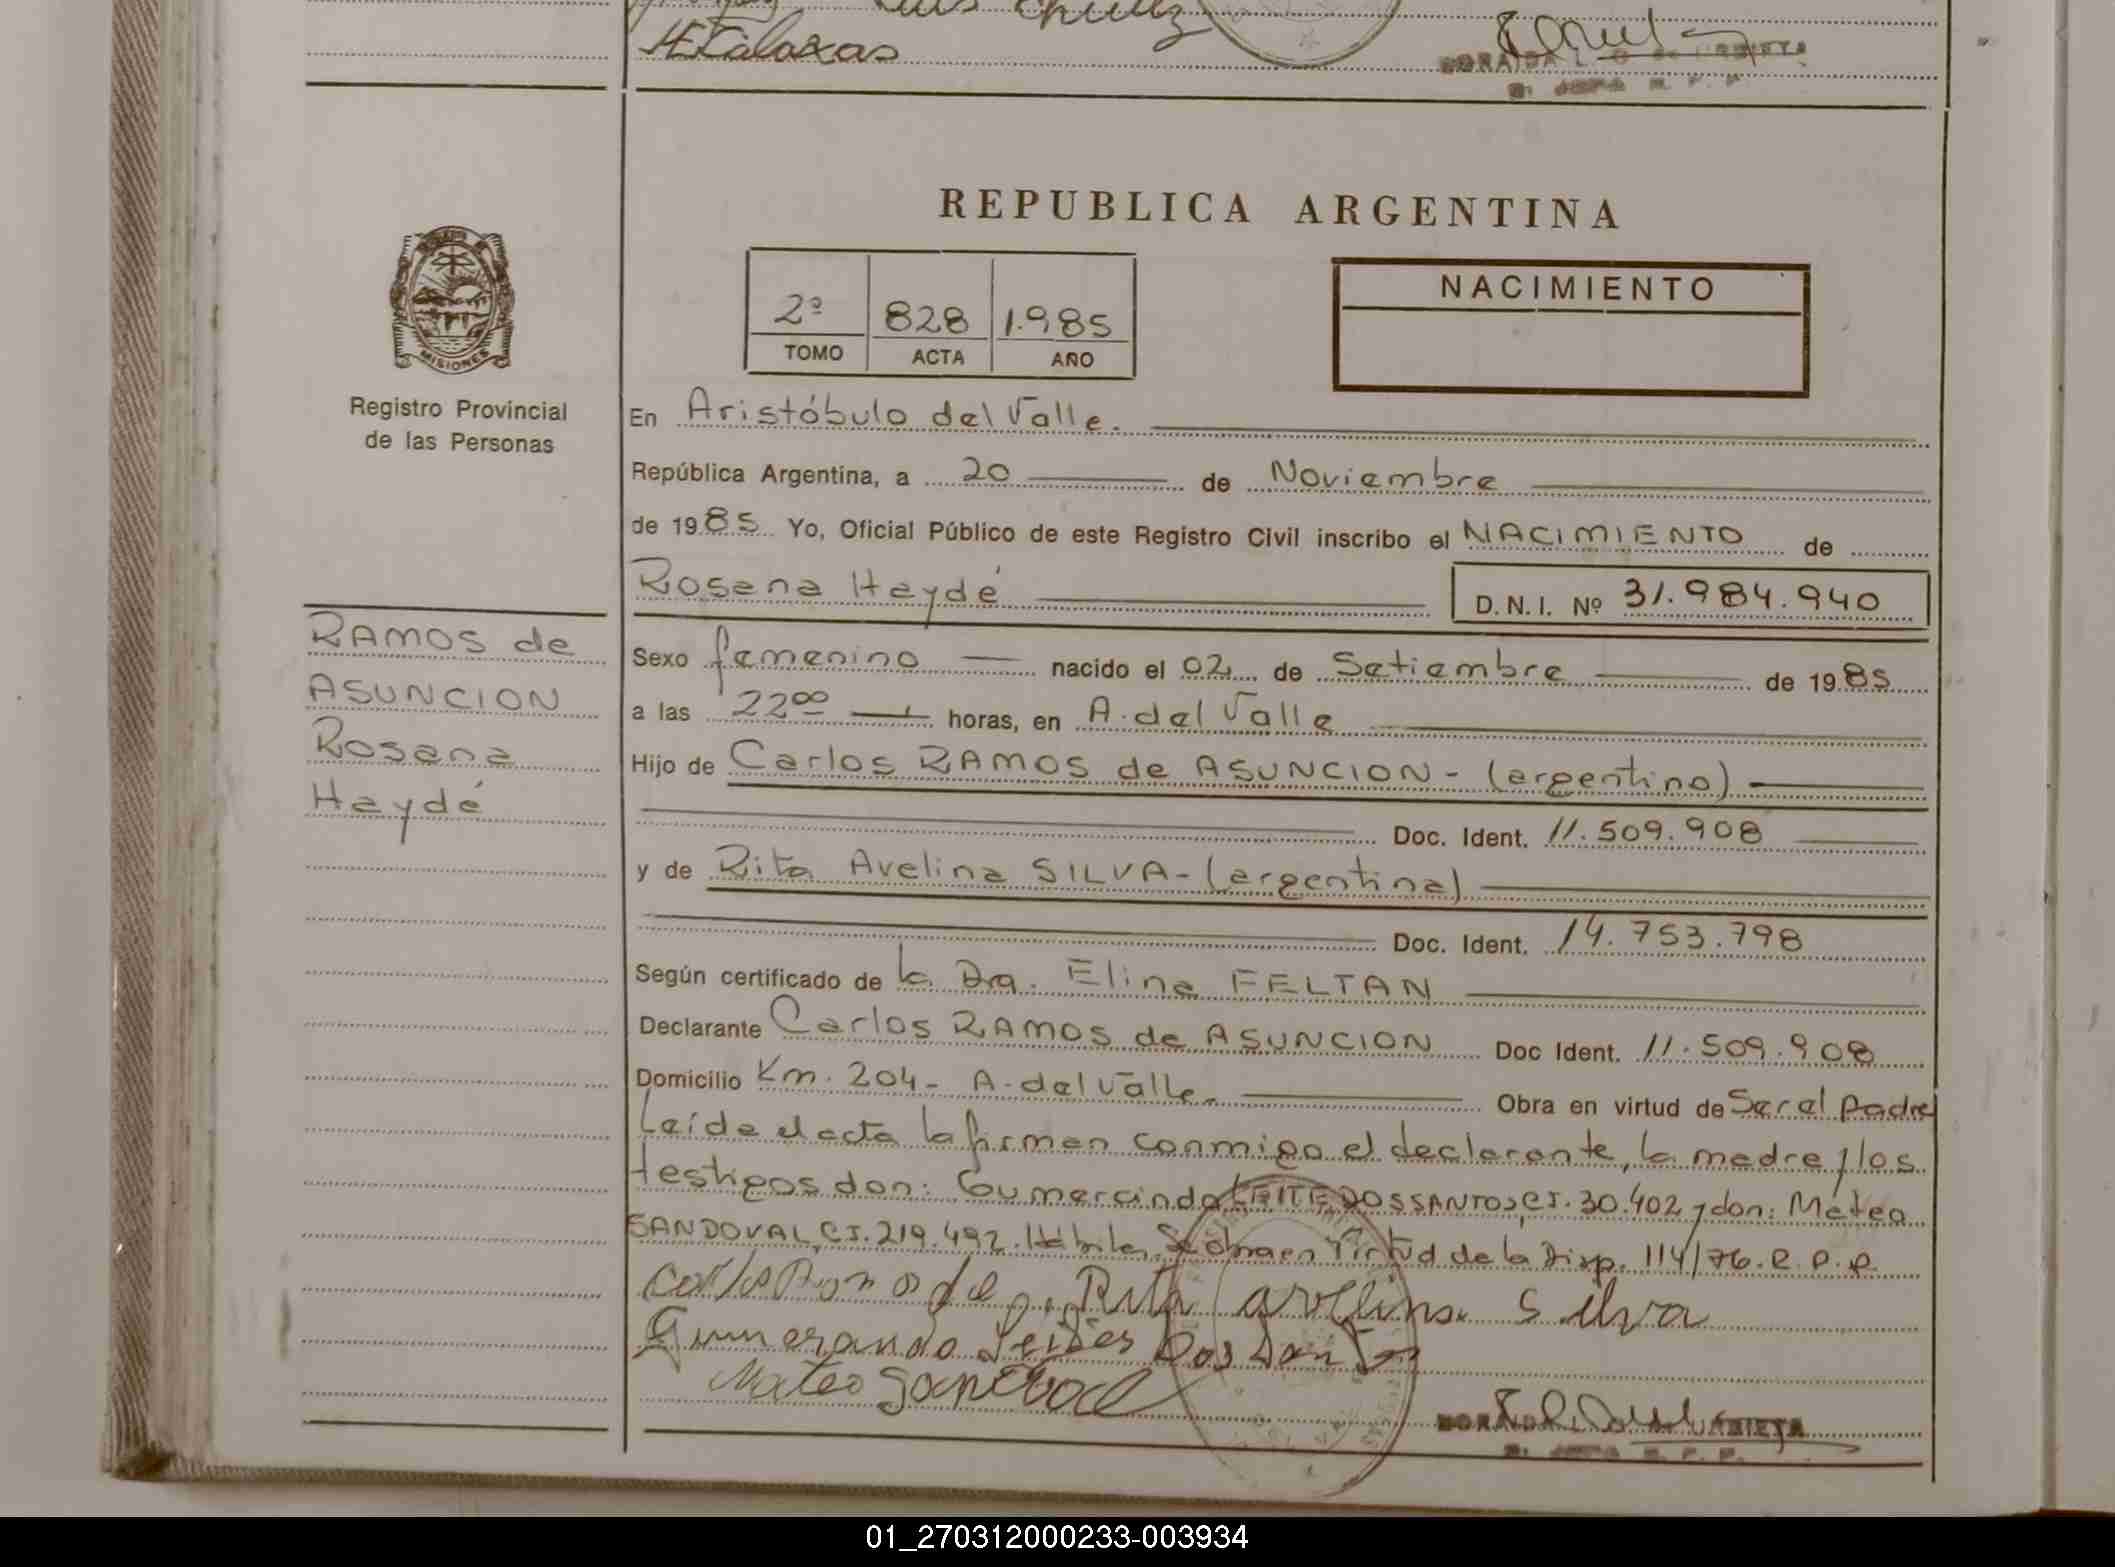 Luis
REPUBLICA ARGENTINA
MISIONES
Registro Provincial
de las Personas
2º 828 1.985
TOMO ACTA AÑO
NACIMIENTO
En Aristóbulo del Valle.
República Argentina, a 20 de Noviembre
de 1985 Yo, Oficial Público de este Registro Civil inscribo el NACIMIENTO de
Rosana Haydé D.N.I. Nº 31.984.940
RAMOS de
ASUNCION
Rosana
Haydé
Sexo femenino nacido el 02 de Setiembre de 1985
a las 22⁰⁰ horas, en A. del Valle
Hijo de Carlos RAMOS de ASUNCION - (argentino)
Doc. Ident. 11.509.908
y de Rita Avelina SILVA - (argentina)
Doc. Ident. 14.753.798
Según certificado de la Dra. Elina FELTAN
Declarante Carlos RAMOS de ASUNCION Doc Ident. 11.509.908
Domicilio Km. 204 - A. del Valle. Obra en virtud de Ser el padre
Leída el acta la firman conmigo el declarante, la madre y los
testigos don: Gumercindo LEITE DOS SANTOS, CI. 30.402 y don: Mateo
SANDOVAL, CI. 219.492. Hábiles. Se obra en Virtud de la Disp. 114/76. R. P. P.
Rita avelina Silva
Dos Santos
Mateo Sandoval
01_270312000233-003934